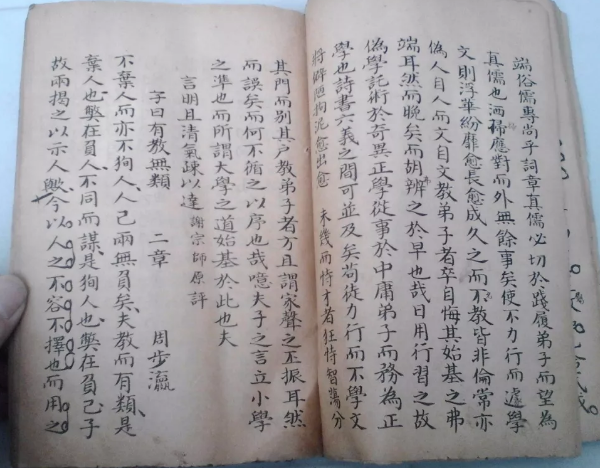 端俗儒專尚乎詞章真儒必切於踐履弟子而望為
真儒也洒掃應對而外無餘事矣使不力行而遽學
文則浮華紛靡愈長愈成久之而不教皆非倫常亦
偽人目人而文目文教弟子者卒自悔其始基之弗
端耳然而晚矣而胡辨之於早也哉日用行習之故
偽學託術於奇異正學從事於中庸弟子而務為正
學也詩書六義之間可並及矣苟徒力行而不學文
將僻陋拘泥愈出愈 未幾而恃才者狂恃智蕩分
其門而別其户教弟子者方且謂家聲之丕振耳然
而誤矣而何不循之以序也哉噫夫子之言立小學
之準也而所謂大學之道始基於此也夫
言明且清氣疎以達 謝宗師原評
子曰有教無類 二章 周步瀛
不棄人而亦不狥人人己兩無負矣夫教而有類是
棄人也獘在負人不同而謀是狥人也獘在負己子
故兩揭之以示人與今以人之不容不擇也而用之